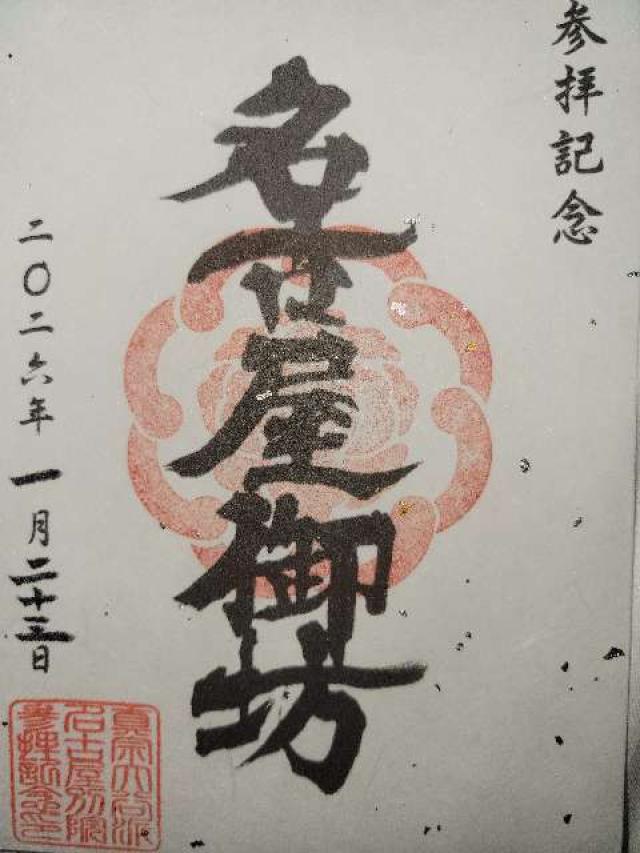 参拝記念
名古屋御坊
二〇二六年一月二十三日
真宗大谷派
名古屋別院
参拝記念之印